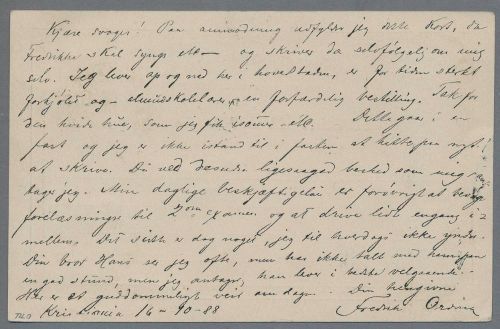 Kjære svoger! Paa anmodning udfylder jeg dette Kort, da
Fredrikke skal synge etc. og skriver da selvfølgelig om mig
selv. Jeg lever op og ned her i hovedstaden, er for tiden sterkt
forkjølet og en forfærdelig bestilling. Tak for
den hvide hue, som jeg fik isommer etc. Dette gaar i en
fart og jeg er ikke istand til i farten at hitte paa nyt
at skrive. Du ved desuden ligesaagod besked som meg
jeg. Min daglige beskjæftigelse er forøvrigt at
forelæsninger til 2den examen og at drive lidt engang i-
mellem. Det sidste er dog noget, jeg til hverdags ikke ynder.
Din bror Hans ser jeg ofte, men har ikke talt med
en god stund, men jeg antager, han lever i bedste velgaaende.
Her er et guddommeligt veir om dagen. Din hengivne
Kristiania 16-10-88 Fredrik Ording